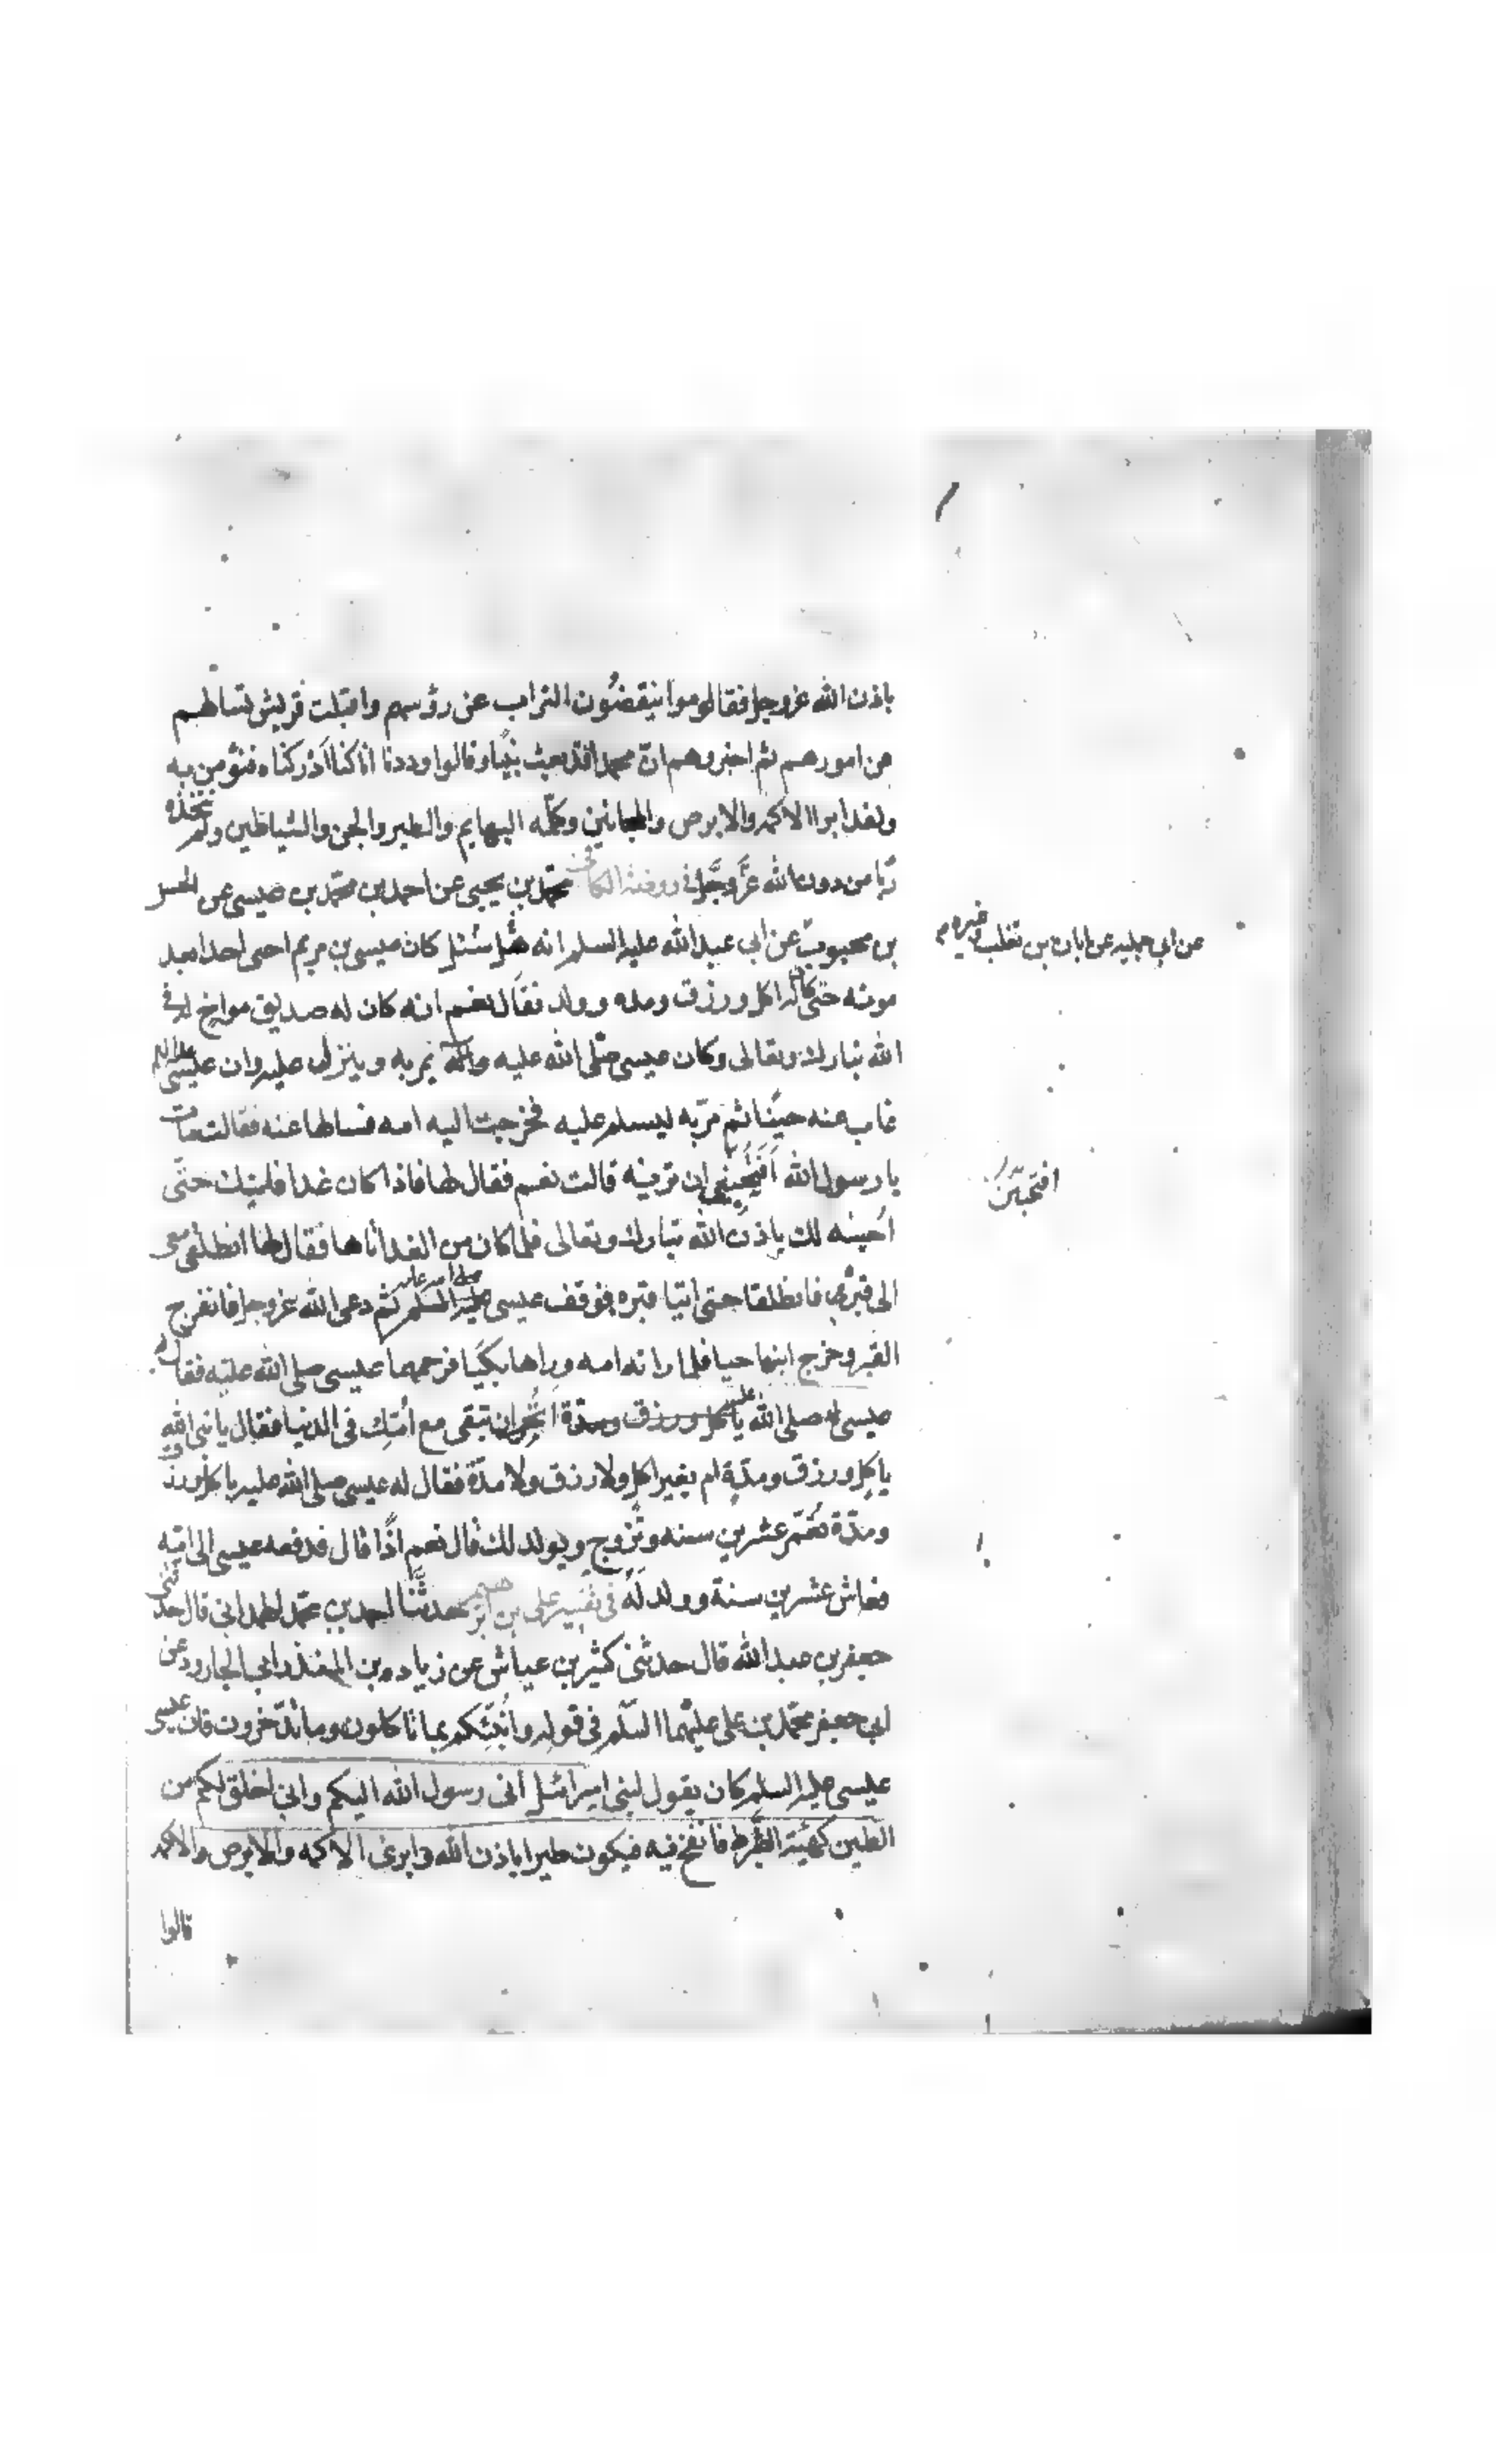 باذن الله عز وجل فقاموا ينقضون التراب عن رؤسهم واقبلت قريش تسألهم
عن امورهم ثم اخبروهم ان محمدا قد بعث نبيا وقالوا وددنا انا كنا ادركناه فنؤمن به
ولقد ابرا الاكمه والابرص والمجانين وكلمه البهايم والطير والجن والشياطين ولم نتخذه
ربا من دون الله عز وجل في روضة الكافي محمد بن يحيى عن احمد بن محمد بن عيسى عن الحسن
بن محبوب عن ابي عبد الله عليه السلم انه سئل هل كان عيسى بن مريم احيى احدا بعد
عن ابي جميله عن ابان بن تغلب وغيره
موته حتى كان له اكل ورزق ومده وولد فقال نعم انه كان له صديق مواخ له في
الله تبارك وتعالى وكان عيسى صلى الله عليه واله يمر به وينزل عليه وان عيسى عليه السلم
غاب عنه حينا ثم مر به ليسلم عليه فخرجت اليه امه فسالها عنه فقالت مات
يا رسول الله افتحبين ان تريه قالت نعم فقال لها فاذا كان غدا فاتيتك حتى
افتحبين
احييه لك باذن الله تبارك وتعالى فلما كان من الغد اتاها فقال لها انطلقي معي
الى قبره فانطلقا حتى اتيا قبره فوقف عيسى صلى الله عليه ثم دعى الله عز وجل فانفرج
القبر وخرج ابنها حيا فلما راته امه وراها بكيا فرحمهما عيسى صلى الله عليه فقال له
عيسى صلى الله عليه باكل ورزق ومدة اتحب ان تبقى مع امك في الدنيا فقال يا نبي الله
باكل ورزق ومدة ام بغير اكل ولا رزق ولا مدة فقال له عيسى صلى الله عليه باكل ورزق
ومدة تعمر عشرين سنه وتزوج ويولد لك قال نعم اذا قال فدفعه عيسى الى امه
فعاش عشرين سنة وولد له في تفسير علي بن ابرهيم حدثنا احمد بن محمد الهمداني قال حدثني
جعفر بن عبد الله قال حدثني كثير بن عياش عن زياد بن المنذر ابي الجارود عن
ابي جعفر محمد بن علي عليهما السلم في قوله وانبئكم بما تاكلون وما تدخرون فان عيسى
عيسى عليه السلم كان يقول لبني اسرائيل اني رسول الله اليكم واني اخلق لكم من
الطين كهيئة الطير فانفخ فيه فيكون طيرا باذن الله وابرئ الاكمه والابرص والاكمه
قالوا